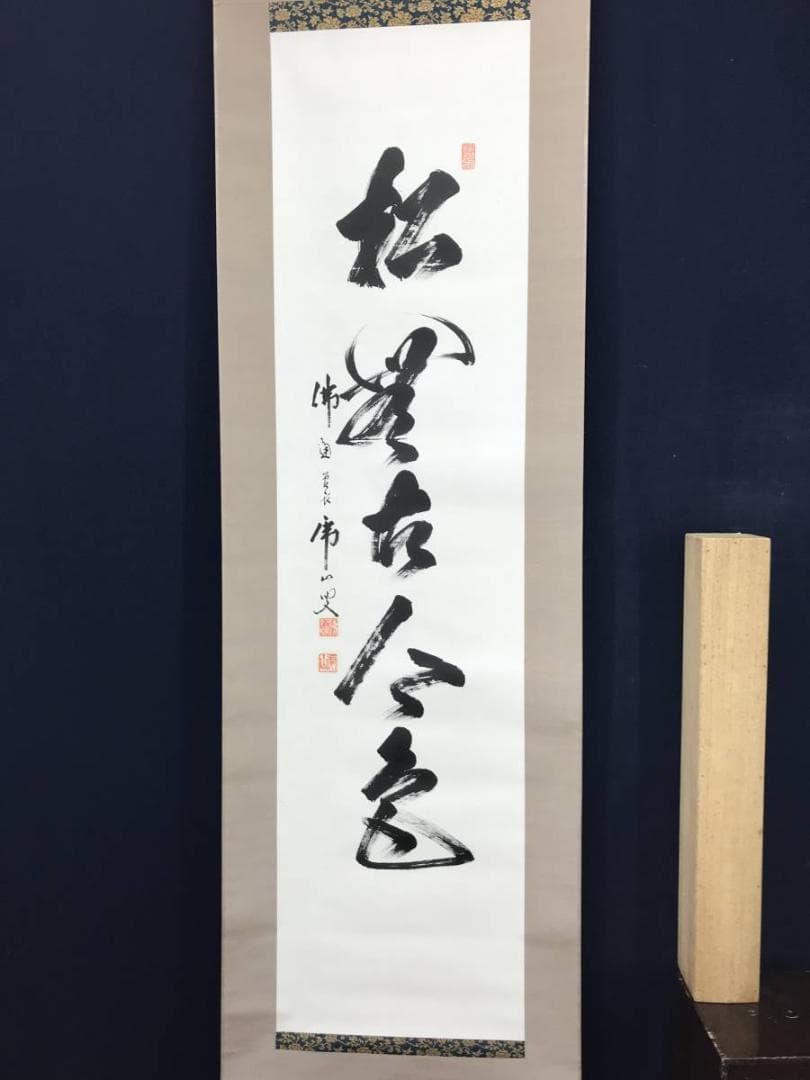 松無古今色
佛通寺 虎山叟